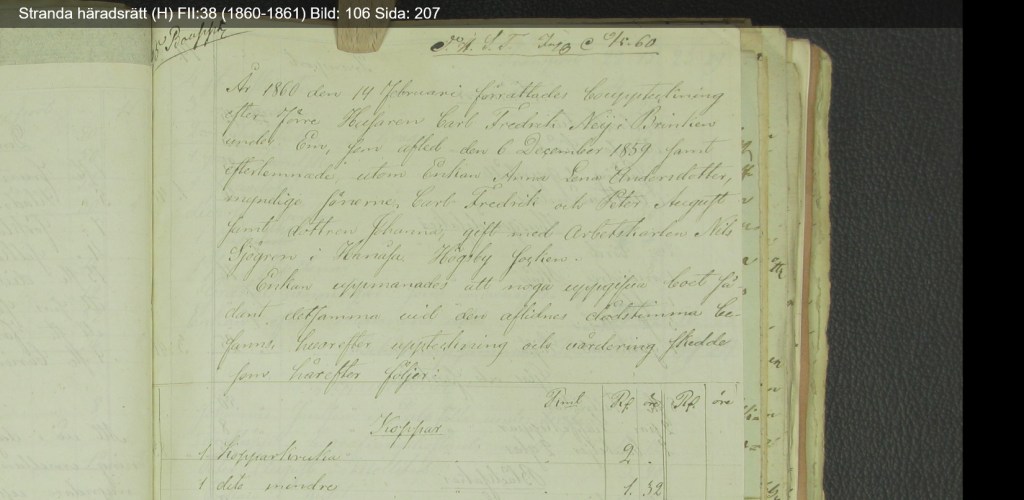 Stranda häradsrätt (H) FII:38 (1860-1861) Bild: 106 Sida: 207
År 1860 den 14 Februari förrättades bouppteckning
efter förre Husaren Carl Fredrik Neij i Brinken
under Em, som afled den 6 December 1859 samt
efterlemnade, utom Enkan Anna Lena Andersdotter,
myndige sönerne, Carl Fredrik och Peter August
samt dottren Johanna, gift med Arbetskarlen Nils
Sjögren i Högsby Socken.
Enkan uppmanades att noga uppgifva boet så-
dant detsamma vid den aflidnes dödstimma be-
fanns, hwarefter uppteckning och värdering skedde
som härefter följer:
Rmt Rf öre Rf öre
Koppar
1 Kopparkruka 2 .
1 dito mindre 1. 32